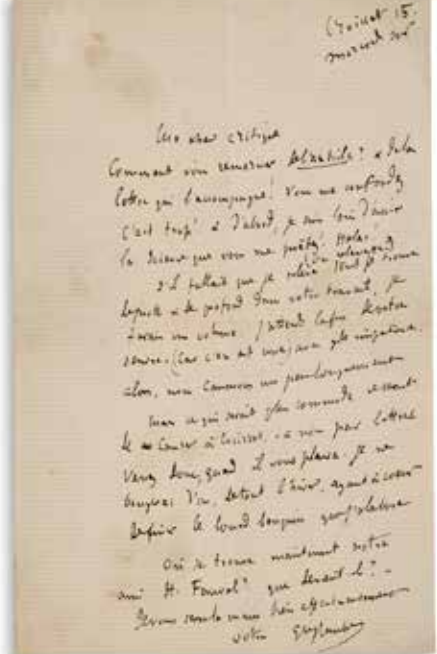 Croisset 15.
mercredi soir
Mon cher critique
Comment vous remercier de l'article? & de la
lettre qui l'accompagne! Vous me confondez
C'est trop! & d'abord, je suis loin d'avoir
la science que vous me prêtez! Hélas!
S'il fallait que je relève tout je trouve
de profond dans votre travail, je
un volume. J'attends la fin de votre
(car c'en est une) avec
alors, nous causerons un peu longuement
mais ce qui serait plus commode, ce serait
de causer à Croisset, & non par lettres
Venez donc, quand il vous plaira. Je ne
bougerai d'ici, de tout l'hiver, ayant à cœur
de finir le lourd bouquin
Où se trouve maintenant notre
ami H. que devient-il? –
Je vous serre la main très affectueusement
votre Gve Flaubert